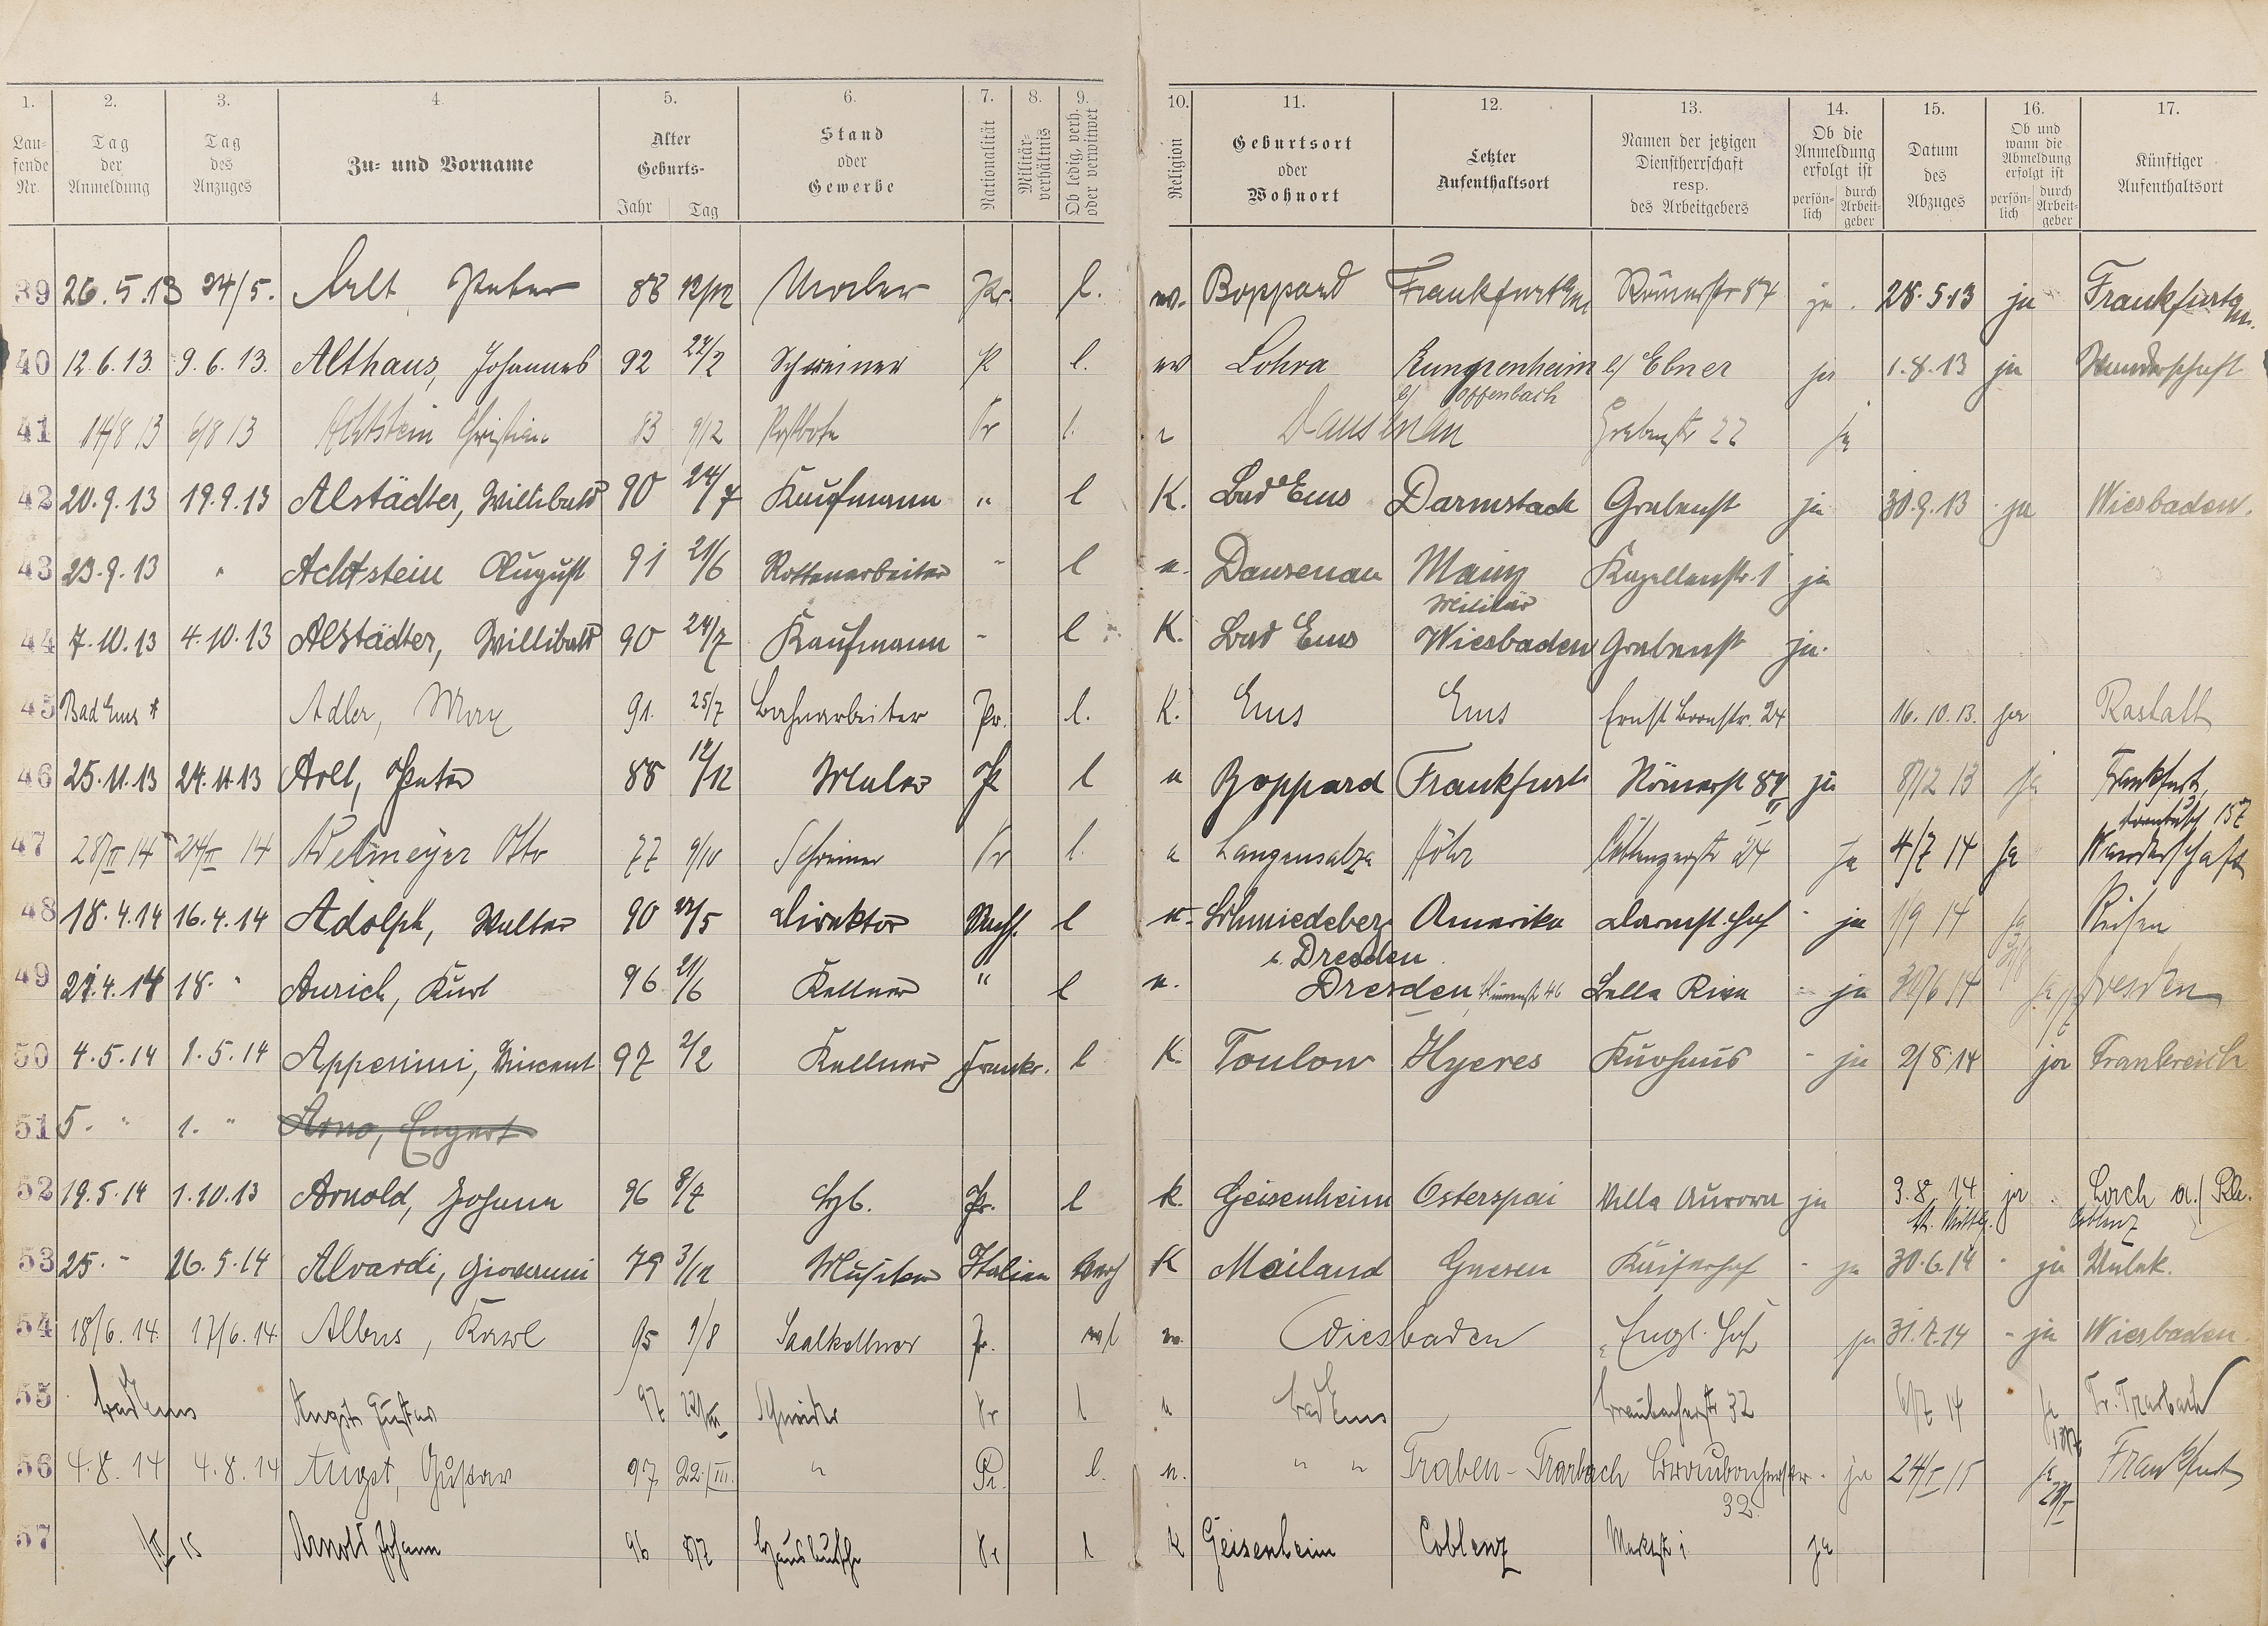 1. 2. 3. 4. 5. 6. 7. 8. 9. 10. 11. 12. 13. 14. 15. 16. 17.
Laufende Nr. Tag der Anmeldung Tag des Anzuges Zu- und Vorname Alter Geburts- Jahr Tag Stand oder Gewerbe Nationalität Militärverhältnis Ob ledig, verh. oder verwitwet Religion Geburtsort oder Wohnort Letzter Aufenthaltsort Namen der jetzigen Dienstherrschaft resp. des Arbeitgebers Ob die Anmeldung erfolgt ist persönlich durch Arbeitgeber Datum des Abzuges Ob und wann die Abmeldung erfolgt ist persönlich durch Arbeitgeber Künftiger Aufenthaltsort
39 26.5.13 24/5. Arlt Peter 88 12/12 Maler Pr. l. ev. Boppard Frankfurt a/M Römerstr 84 ja 28.5.13 ja Frankfurt a/M.
40 12.6.13. 9.6.13. Althaus, Johannes 92 24/2 Schreiner P l. ev Lohra Rumpenheim b/ Offenbach b/ Ebner ja 1.8.13 ja Wanderschaft
41 14/8 13 6/8 13 Achtstein Christian 83 9/12 Postbote Pr l. Dausenau Grabenstr 22 ja
42 20.9.13 19.9.13 Alstädter, Willibald 90 24/7 Kaufmann " l K. Bad Ems Darmstadt Grabenst ja 30.9.13 ja Wiesbaden.
43 23.9.13 " Achtstein August 91 21/6 Rottenarbeiter " l e. Dausenau Mainz Militär Kapellenstr. 1 ja
44 7.10.13 4.10.13 Alstädter, Willibald 90 24/7 Kaufmann - l K. Bad Ems Wiesbaden Grabenst ja.
45 Bad Ems * Adler, Max 91. 25/7 Bahnarbeiter Pr. l. K. Ems Ems Ernst Bornstr. 24 16.10.13. ja Rastatt
46 25.11.13 24.11.13 Arlt, Peter 88 12/12 Maler P l e Boppard Frankfurt Römerst 84 ja 8/12 13 ja Frankfurt,
47 28/II 14 24/II 14 Otto 77 9/10 Schreiner Pr l. e Langensalza Höhr Coblenzerstr ja 4/7 14 ja Wanderschaft
48 18.4.14 16.4.14 Adolph, Walter 90 22/5 Direktor Sachs. l e. Schmiedeberg b. Dresden Amerika Darmst. Hof - ja 1/9 14 ja Reisen
49 21.4.14 18. " Aurich, Kurl 96 21/6 Kellner " l e. Dresden Bella Riva - ja 30/6 14 ja Dresden
50 4.5.14 1.5.14 Apperimi, Vincent 97 2/2 Kellner Frankr. l K. Toulon Hyeres Kurhaus - ja 2/8 14 ja Frankreich
51 5. " 1. " Arno, Engert
52 19.5.14 1.10.13 Arnold, Johann 96 8/7 Hsb. Pr. l k. Geisenheim Osterspai Villa Aurora ja 3.8.14 ja Lorch a./Rh. Coblenz
53 25. - 26.5.14 Alvardi, Giovanni 79 3/12 Musiker Italien verh K Mailand Gnesen Kaiserhof - ja 30.6.14 - ja Unbek.
54 18/6.14. 17/6.14 Albus, Karl 95 9/8 Saalkellner Pr. l ev. Wiesbaden Engl. Hof ja 31.7.14 - ja Wiesbaden.
55 Bad Ems Angst Gustav 97 22/III Schneider Pr l e Bad Ems Braubacherstr 32 6/7 14 ja Tr. Trarbach
56 4.8.14 4.8.14 Angst, Gustav 97 22./III. " Pr. l. e. " " Traben-Trarbach Braubacherstr. 32. ja 24/I 15 ja Frankfurt
57 1/II 15 Arnold Johann 96 8/7 Hausbursche Pr l K Geisenheim Coblenz Marktst 1 ja